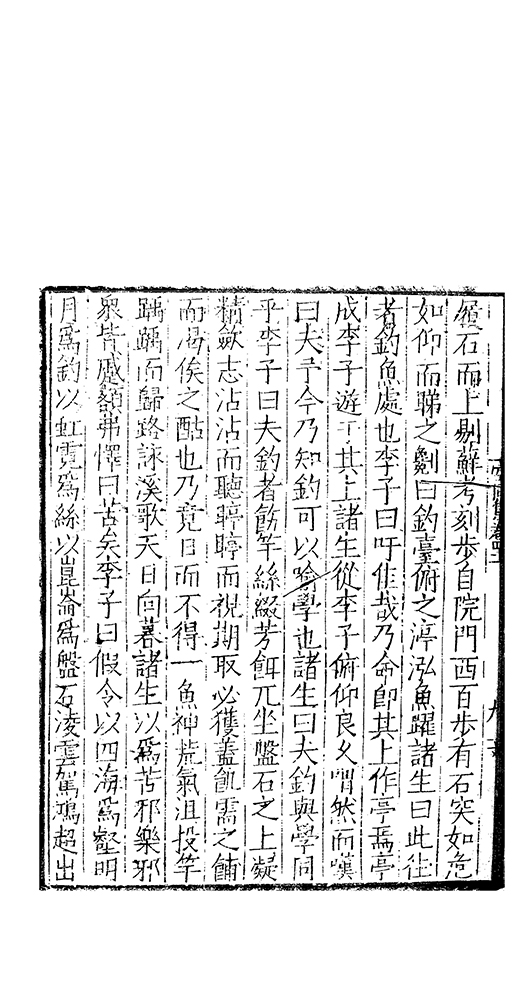 履石而上剔蘚考刻步自院門西百步有石突如危
如仰而睇之劖曰釣臺俯之渟泓魚躍諸生曰此往
者釣魚處也李子曰吁佳哉乃命卽其上作亭焉亭
成李子遊于其上諸生從李子俯仰良久喟然而嘆
曰夫予今乃知釣可以喻學也諸生曰夫釣與學同
乎李子曰夫釣者飭竿絲綴芳餌兀坐盤石之上凝
精歛志沾沾而聽聹聹而視期取必獲蓋飢需之餔
而渴俟之酤也乃竟日而不得一魚神荒氣沮投竿
踽踽而歸路詠溪歌天日向暮諸生以爲苦邪樂邪
衆皆蹙額弗懌曰苦矣李子曰假令以四海爲壑明
月爲釣以虹霓爲絲以崑崙爲盤石淩雲駕鴻超出